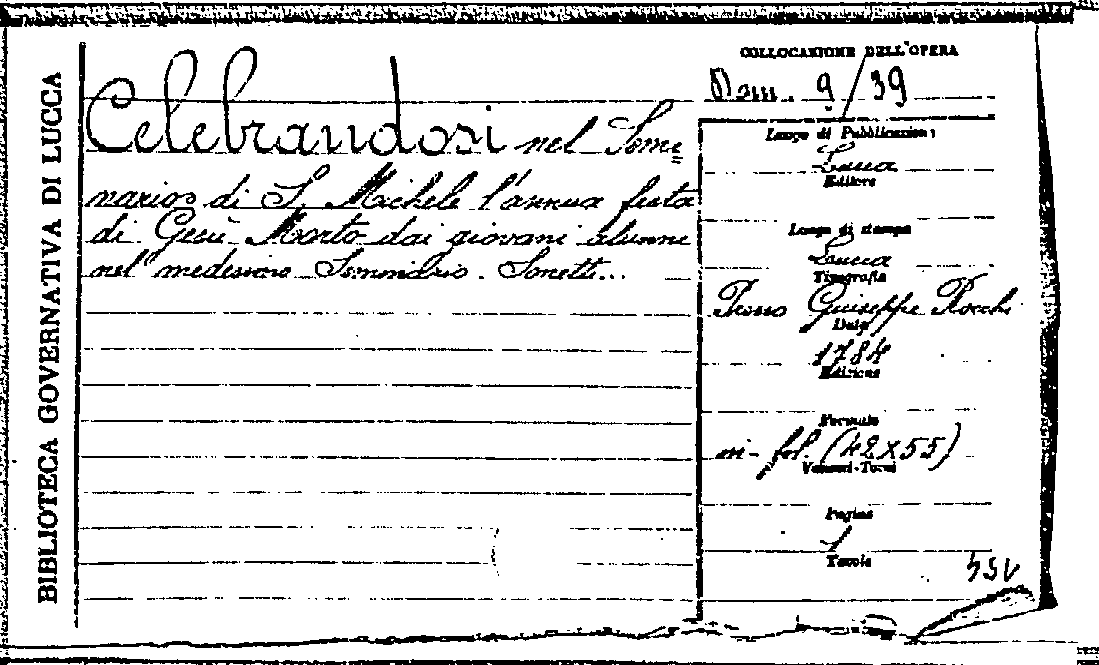 BIBLIOTECA GOVERNATIVA DI LUCCA
COLLOCAZIONE DELL'OPERA
9/39
Celebrandosi nel Semi=
nario di S. Michele l'annua festa
di Gesù Morto dai giovani alunni
nel medesimo Seminario. Sonetti...
Luogo di Pubblicazione
Lucca
Editore
Luogo di stampa
Lucca
Tipografia
Presso Giuseppe Rocchi
Data
1784
Edizione
Formato
in-fol. (42x55)
Volumi-Tomi
Pagine
1
Tavole
154